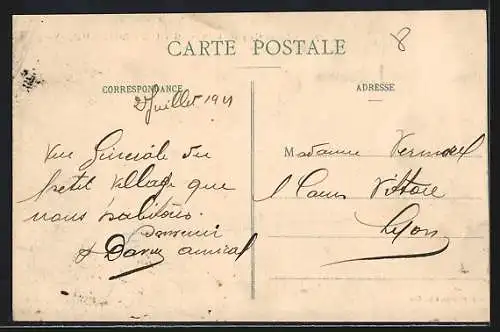 CARTE POSTALE
8
CORRESPONDANCE
ADRESSE
2 Juillet 1911
Vue Générale du
petit village que
nous habitons.
Souvenir
& amical
Madame Vermorel
1 Cours Vitton
Lyon